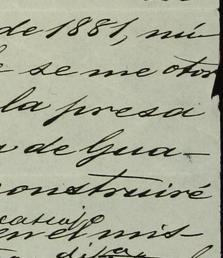 de 1881, nú-
se me otor
la presa
de Gua-
construiré
en el mis